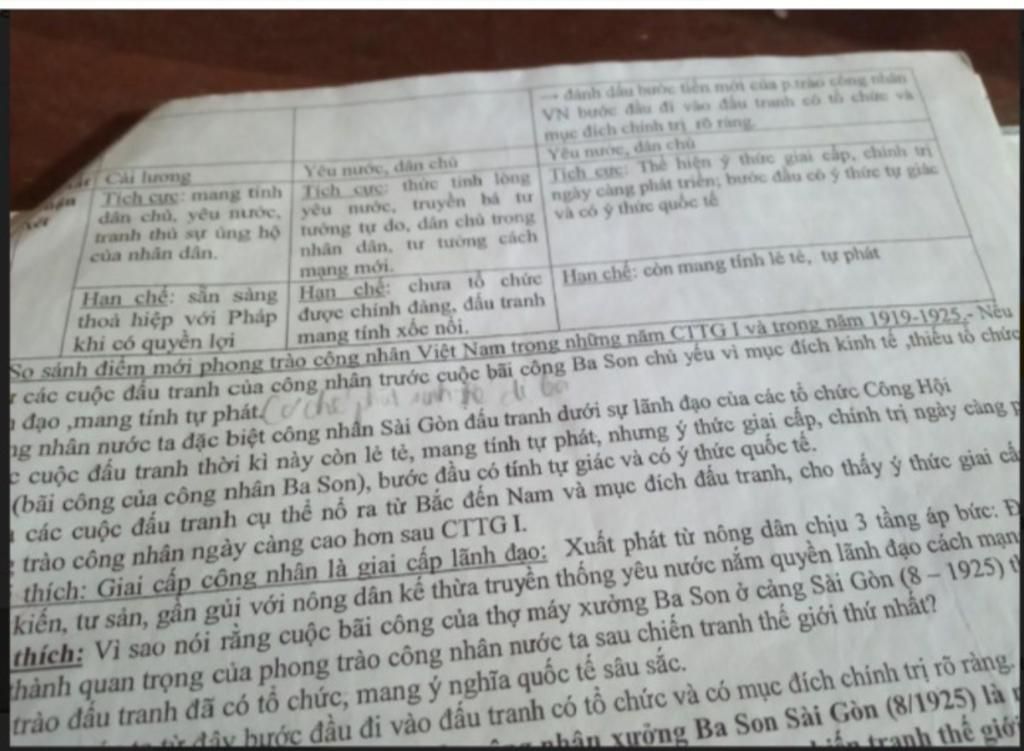 → đánh dấu bước tiến mới của p.trào công nhân
VN bước đầu đi vào đấu tranh có tổ chức và
mục đích chính trị rõ ràng.
Cải lương
Yêu nước, dân chủ
Yêu nước, dân chủ
Tích cực: mang tính
dân chủ, yêu nước,
tranh thủ sự ủng hộ
của nhân dân.
Tích cực: thức tỉnh lòng
yêu nước, truyền bá tư
tưởng tự do, dân chủ trong
nhân dân, tư tưởng cách
mạng mới.
Tích cực: Thể hiện ý thức giai cấp, chính trị
ngày càng phát triển; bước đầu có ý thức tự giác
và có ý thức quốc tế
Hạn chế: sẵn sàng
thoả hiệp với Pháp
khi có quyền lợi
Hạn chế: chưa tổ chức
được chính đảng, đấu tranh
mang tính xốc nổi.
Hạn chế: còn mang tính lẻ tẻ, tự phát
So sánh điểm mới phong trào công nhân Việt Nam trong những năm CTTG I và trong năm 1919-1925.- Nếu
các cuộc đấu tranh của công nhân trước cuộc bãi công Ba Son chủ yếu vì mục đích kinh tế ,thiếu tổ chức
đạo ,mang tính tự phát.
nhân nước ta đặc biệt công nhân Sài Gòn đấu tranh dưới sự lãnh đạo của các tổ chức Công Hội
cuộc đấu tranh thời kì này còn lẻ tẻ, mang tính tự phát, nhưng ý thức giai cấp, chính trị ngày càng
(bãi công của công nhân Ba Son), bước đầu có tính tự giác và có ý thức quốc tế.
các cuộc đấu tranh cụ thể nổ ra từ Bắc đến Nam và mục đích đấu tranh, cho thấy ý thức giai
trào công nhân ngày càng cao hơn sau CTTG I.
thích: Giai cấp công nhân là giai cấp lãnh đạo: Xuất phát từ nông dân chịu 3 tầng áp bức: Đ
kiến, tư sản, gần gũi với nông dân kế thừa truyền thống yêu nước nắm quyền lãnh đạo cách
thích: Vì sao nói rằng cuộc bãi công của thợ máy xưởng Ba Son ở cảng Sài Gòn (8 – 1925)
hành quan trọng của phong trào công nhân nước ta sau chiến tranh thế giới thứ nhất?
trào đấu tranh đã có tổ chức, mang ý nghĩa quốc tế sâu sắc.
từ đây bước đầu đi vào đấu tranh có tổ chức và có mục đích chính trị rõ ràng.
nhân xưởng Ba Son Sài Gòn (8/1925) là
tranh thế giới